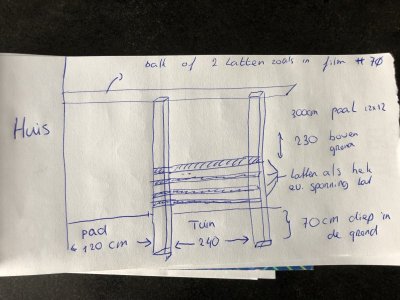 balk of 2 Latten zoals in film #70
Huis
300cm paal 12x12
230 boven
grond
Latten als hek
ev. spanning lat
70cm diep in
de grond
pad
120 cm
Tuin
240